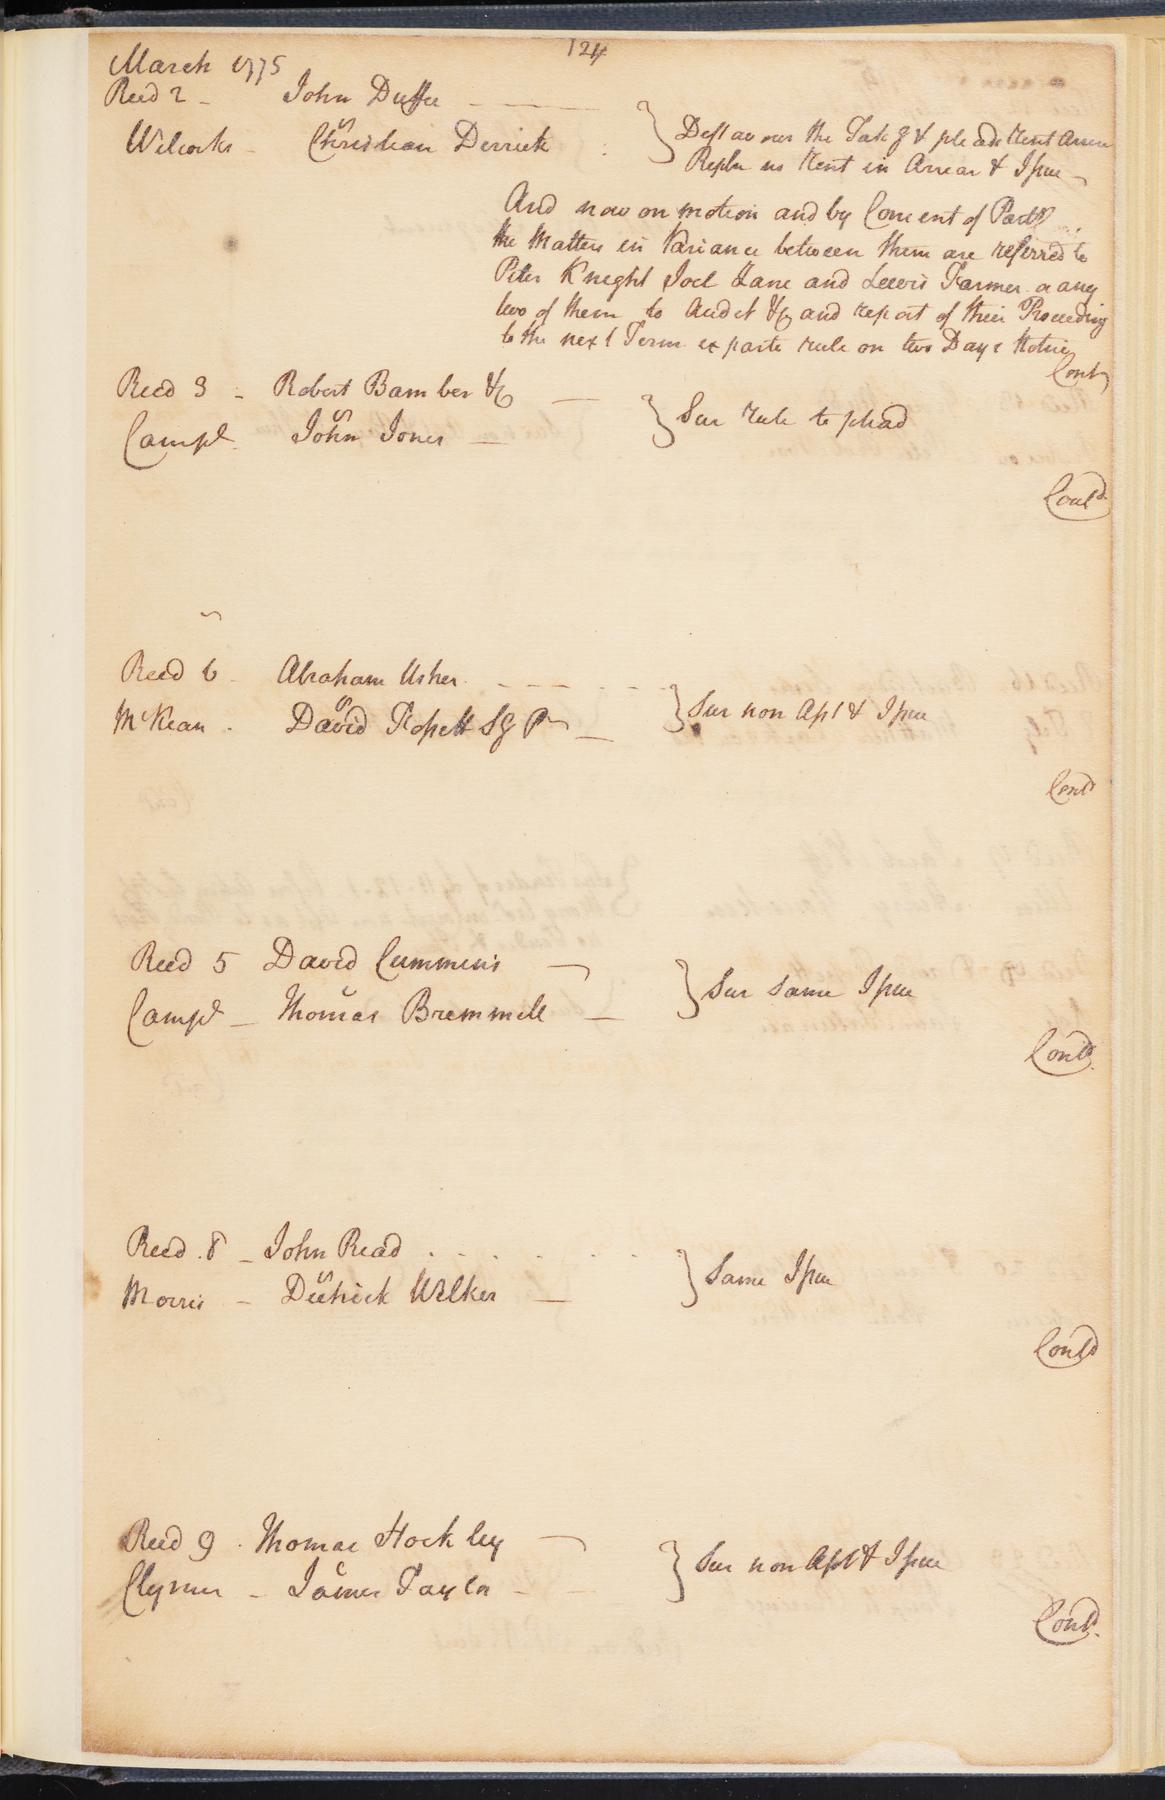 124
March 1775
Reed 2 - John Duffee
vs
Wilcocks - Christian Derrick
Deft avows the Takg & pleads Rent Arrear
Repln no Rent in Arrear & Issue
And now on motion and by Consent of Parts
the Matters in Variance between them are referred to
Peter Knight Joel Zane and Lewis Farmer or any
two of them to Audit &c and report of their Proceeding
to the next Term ex parte rule on two Days Notice
Contd
Reed 3 - Robert Bamber &c
vs
Campl John Jones
Sur rule to plead
Contd
Reed 6 Abraham Usher
vs
McKean David
Sur non Apt & Issue
Contd
Reed 5 David Cummins
v
Campl - Thomas Bremmell
Sur same Issue
Contd
Reed 8 - John Read
vs
Morris - Dietrick Wilker
Same Issue
Contd
Reed 9 Thomas Hockley
v
Clymer - James Taylor
Sur non Apt & Issue
Contd